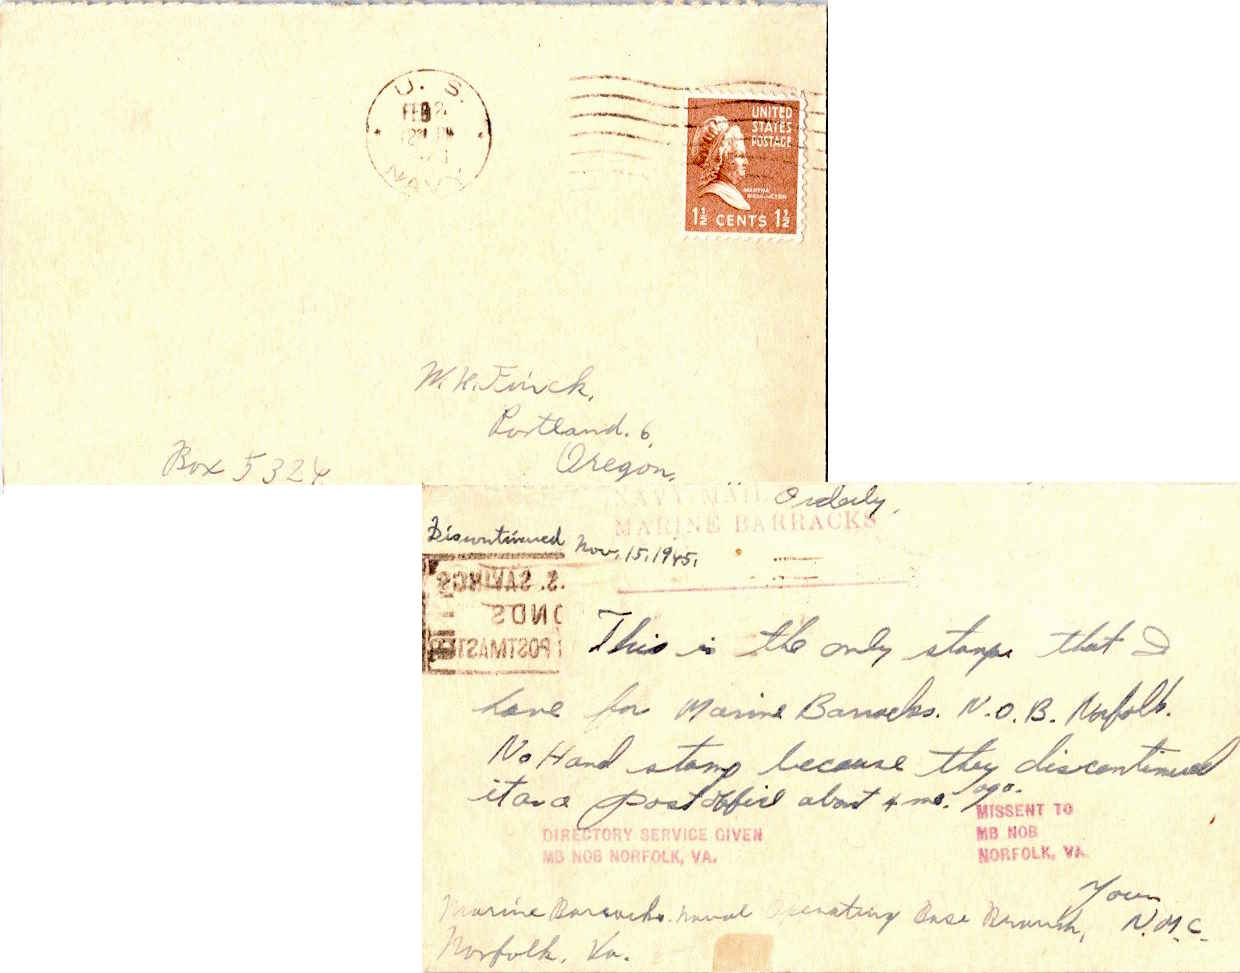 U. S.
FEB 2
NAVY
UNITED
STATES
POSTAGE
MARTHA
WASHINGTON
1½ CENTS 1½
W. H. Finck,
Portland. 6,
Oregon,
Box 5324
NAVY MAIL Orderly,
MARINE BARRACKS
Discontinued Nov, 15, 1945,
S. SAVINGS
ONDS
POSTMAST
This is the only stamp that I
have for Marine Barracks. N.O.B. Norfolk.
No Hand stamp because they discontinued
it as a post office about 4 mo. ago.
MISSENT TO
MB NOB
NORFOLK, VA.
DIRECTORY SERVICE GIVEN
MB NOB NORFOLK, VA.
Marine Barracks. Naval Operating Base Branch,
Norfolk, Va.
Your
N.M.C.